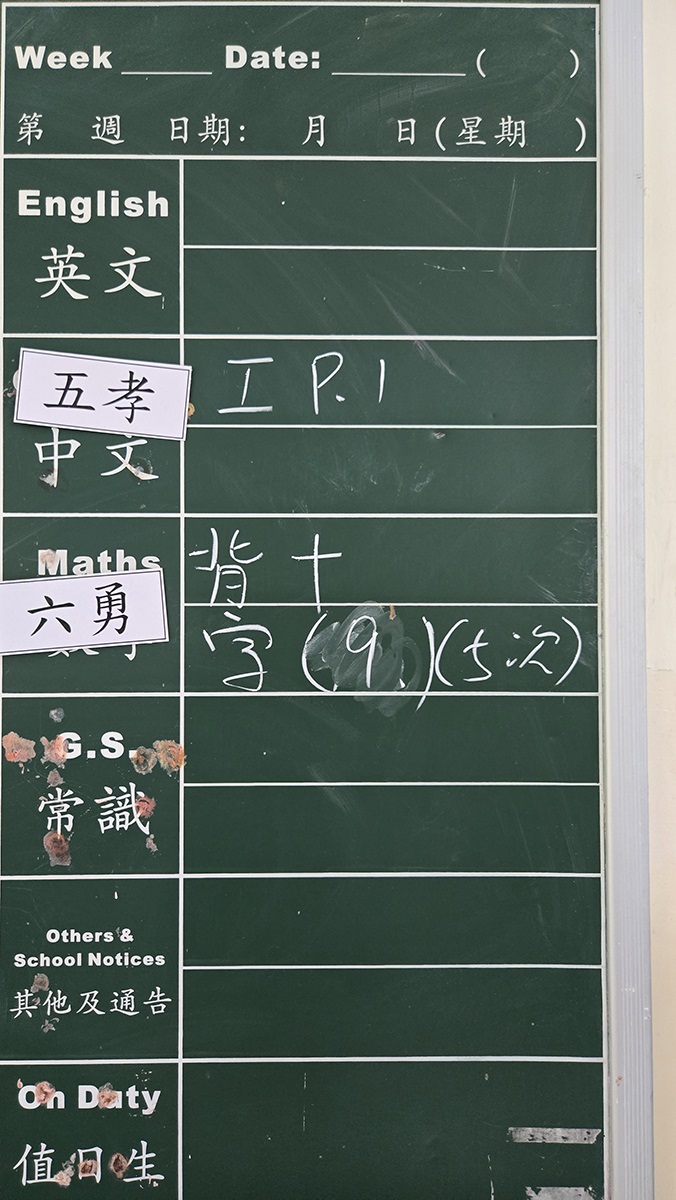 Week ____ Date: ______ (      )
第 週 日期: 月 日(星期 )
English
英文
五孝 工 P.1
中文
Maths 背 十
六勇 字 (9.)(5次)
G.S.
常識
Others &
School Notices
其他及通告
On Duty
值日生